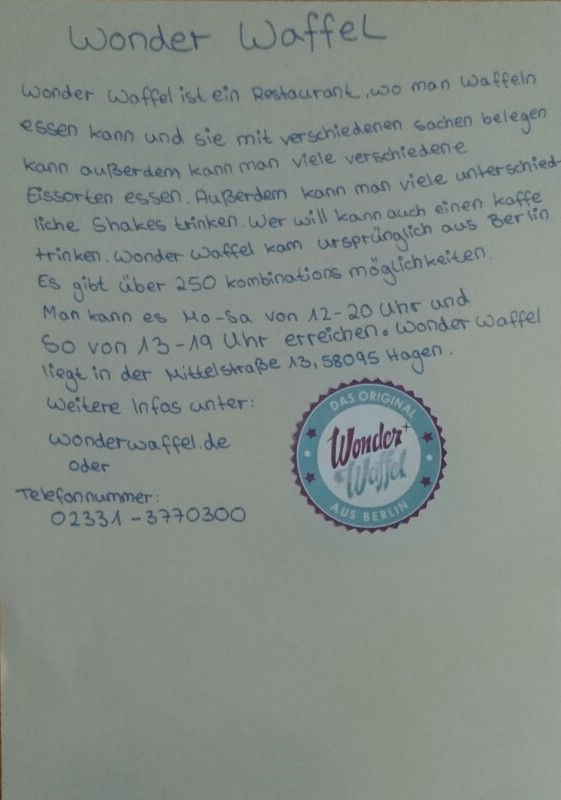 Wonder Waffel
Wonder Waffel ist ein Restaurant, wo man Waffeln
essen kann und sie mit verschiedenen sachen belegen
kann außerdem kann man viele verschiedene
Eissorten essen. Außerdem kann man viele unterschied-
liche Shakes trinken. Wer will kann auch einen kaffe
trinken. Wonder Waffel kam ursprünglich aus Berlin
Es gibt über 250 kombinations möglichkeiten.
Man kann es Mo-Sa von 12-20 Uhr und
So von 13-19 Uhr erreichen. Wonder Waffel
liegt in der Mittelstraße 13, 58095 Hagen.
Weitere Infos unter:
wonderwaffel.de
oder
Telefonnummer:
02331-3770300
DAS ORIGINAL
Wonder
Waffel
AUS BERLIN